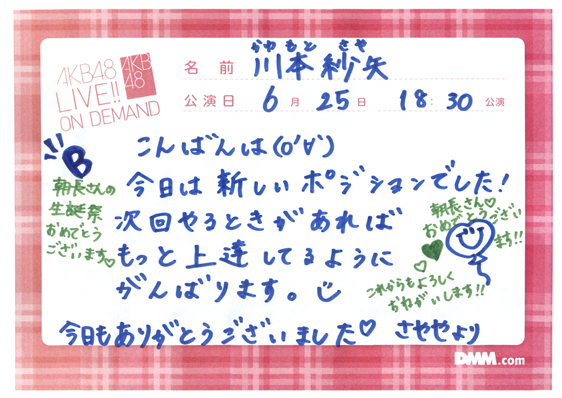 AKB48
LIVE!!
ON DEMAND
AKB
48
かわもと さや
名前 川本紗矢
公演日 6月25日 18:30公演
こんばんは(o'∀')
B
今日は新しいポジションでした!
次回やるときがあれば
もっと上達してるように
がんばります。
朝長さんの
生誕祭
おめでとう
ございます♡
朝長さん♡
おめでとうござい
ます!!
これからもよろしく
おねがいします!!
今日もありがとうございました♡ さややより
DMM.com